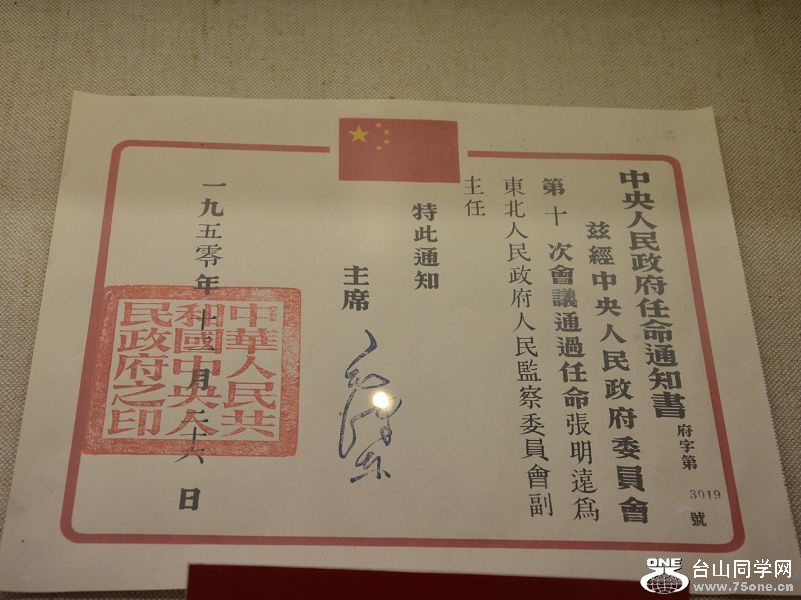 中央人民政府任命通知書
府字第3019號
兹經中央人民政府委員會
第十次會議通過任命張明遠爲
東北人民政府人民監察委員會副
主任
特此通知
主席 毛澤东
一九五零年十月二十六日
中華人民共
和國中央人
民政府之印
ONE
台山同学网
www.75one.cn